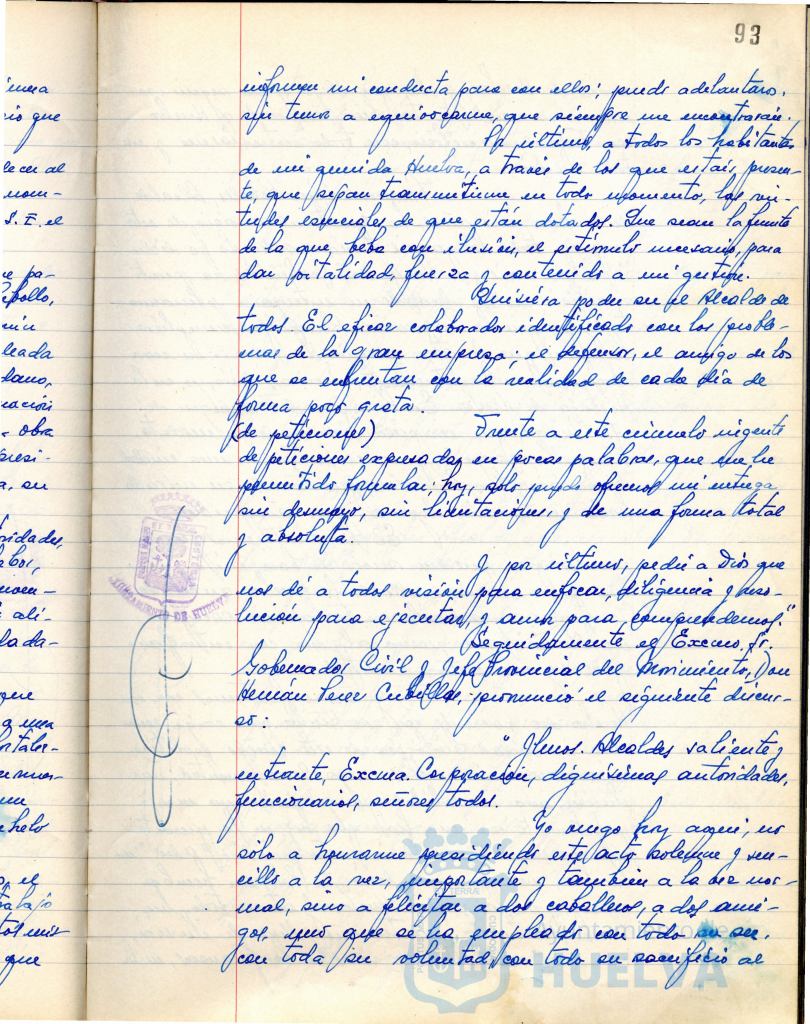 93
informan mi conducta para con ellos; puedo adelantaros,
sin temor a equivocarme, que siempre me encontrarán.
Por último, a todos los habitantes
de mi querida Huelva, a través de los que estais presen-
te, que sepan transmitirme en todo momento, las vir-
tudes esenciales de que están dotados. Que sean la fuente
de la que beba con ilusión, el estímulo necesario, para
dar vitalidad, fuerza y contenido a mi gestión.
Quisiera poder ser el Alcalde de
todos. El eficaz colaborador identificado con los proble-
mas de la gran empresa; el defensor, el amigo de los
que se enfrentan con la realidad de cada día de
forma poco grata.
(de peticiones) Frente a este cúmulo urgente
de peticiones expresadas en pocas palabras, que me he
permitido formular, hoy, solo puedo ofreceros mi entrega
sin desmayo, sin limitaciones, y de una forma total
y absoluta.
Y por último, pedir a Dios que
nos dé a todos visión para enfocar, diligencia y reso-
lución para ejecutar, y amor para, comprendernos."
Seguidamente el Excmo. Sr.
Gobernador Civil y Jefe Provincial del Movimiento, Don
Hernán Perez Cubillas, pronunció el siguiente discur-
so:
"Ilmos. Alcaldes saliente y
entrante, Excma. Corporación, dignísimas autoridades,
funcionarios, señores todos.
Yo vengo hoy aquí, no
sólo a honrarme presidiendo este acto solemne y sen-
cillo a la vez, importante y también a la vez nor-
mal, sino a felicitar a dos caballeros, a dos ami-
gos, uno que se ha empleado con todo su ser,
con toda su voluntad, con todo su sacrificio al
AYUNTAMIENTO DE HUELVA
HUELVA